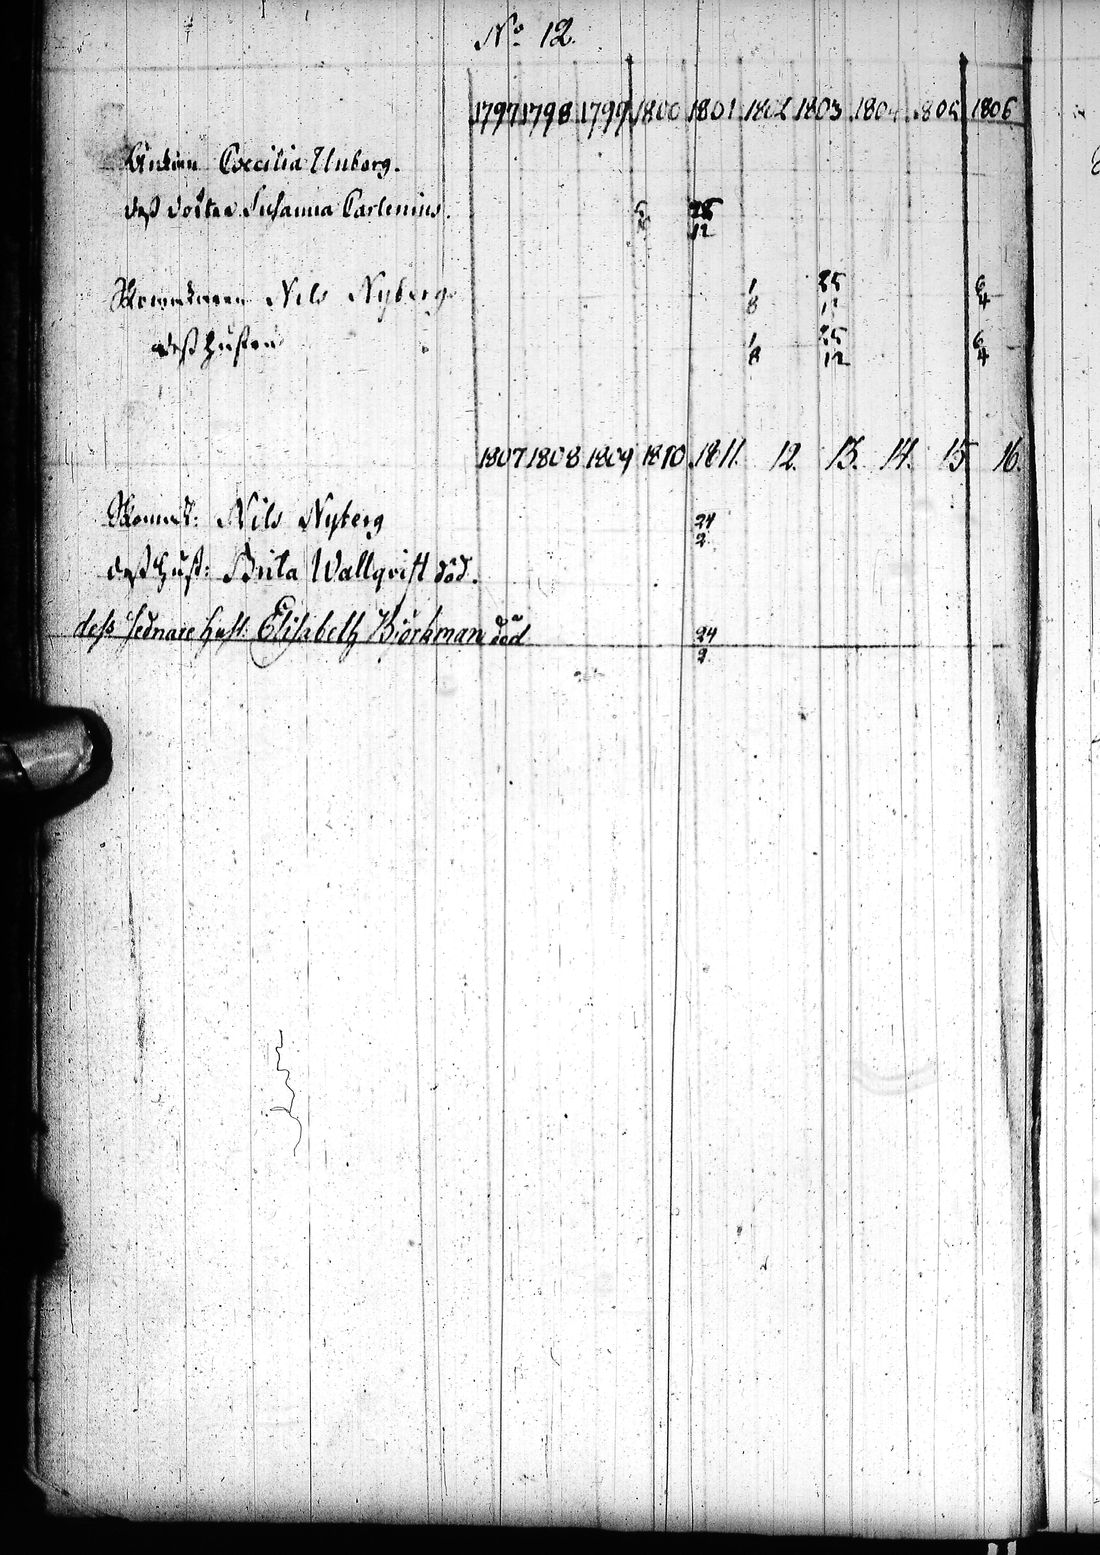 No 12.
1797 1798 1799 1800 1801 1802 1803 1804 1805 1806
Enkian Coecilia Unborg.
dess dotter Susanna Carlenius. 5 28
12
Nils Nyberg 1 25 6
8 12 4
dess hustru 1 25 6
8 12 4
1807 1808 1809 1810 1811. 12. 13. 14. 15 16.
Nils Nyberg 24
2
dess hust: Brita Wallqvist död.
dess sednare hust. Elisabeth Björkman död 24
2